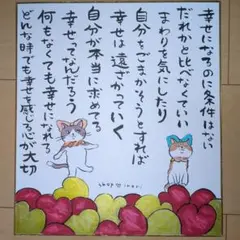 幸せになるのに条件はない
だれかと比べなくていい
まわりを気にしたり
自分をごまかそうとすれば
幸せは遠ざかっていく
自分が本当に求めてる
幸せってなんだろう
何もなくても幸せになれる
どんな時でも幸せを感じる心が大切